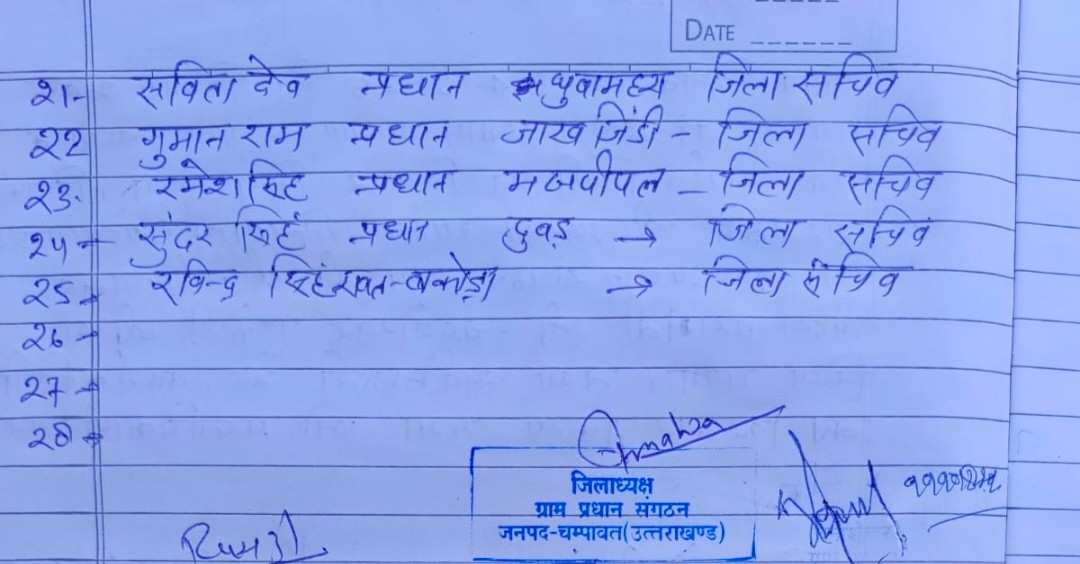 DATE
२1- सविता देव प्रधान धुवामध्य जिला सचिव
२२ गुमान राम प्रधान जाख जिंडी - जिला सचिव
२३. रमेश सिंह प्रधान मजपीपल - जिला सचिव
२४- सुंदर सिंह प्रधान दुवड़ → जिला सचिव
२5- रविन्द्र सिंह रावत - बाकोड़ा → जिला सचिव
२6-
२7-
२8-
जिलाध्यक्ष
ग्राम प्रधान संगठन
जनपद-चम्पावत(उत्तराखण्ड)